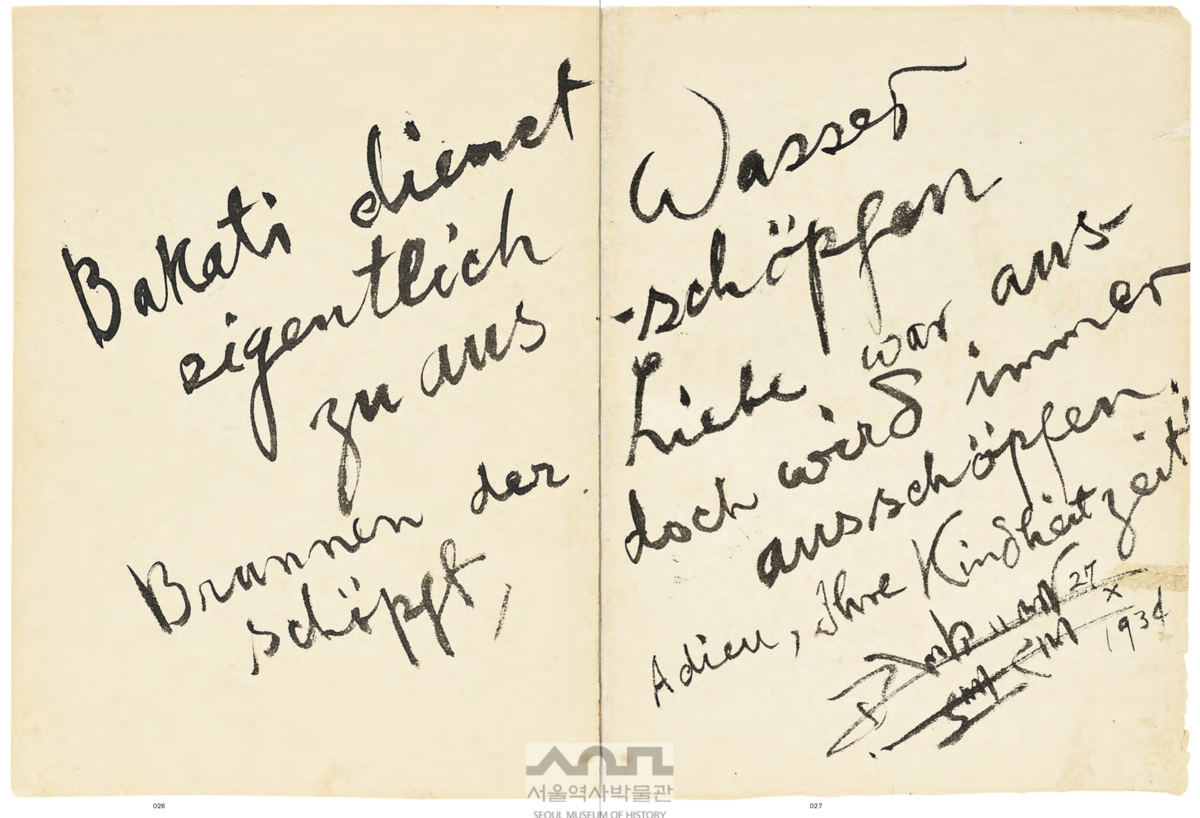 Bakati dienet
eigentlich
zu aus
Brunnen der
schöpft,
Wasser
-schöpfen
Liebe war aus-
doch wird immer
ausschöpfen.
Adieu, Ihre Kindheitzeit!
27
X
1934
026
027
서울역사박물관
SEOUL MUSEUM OF HISTORY